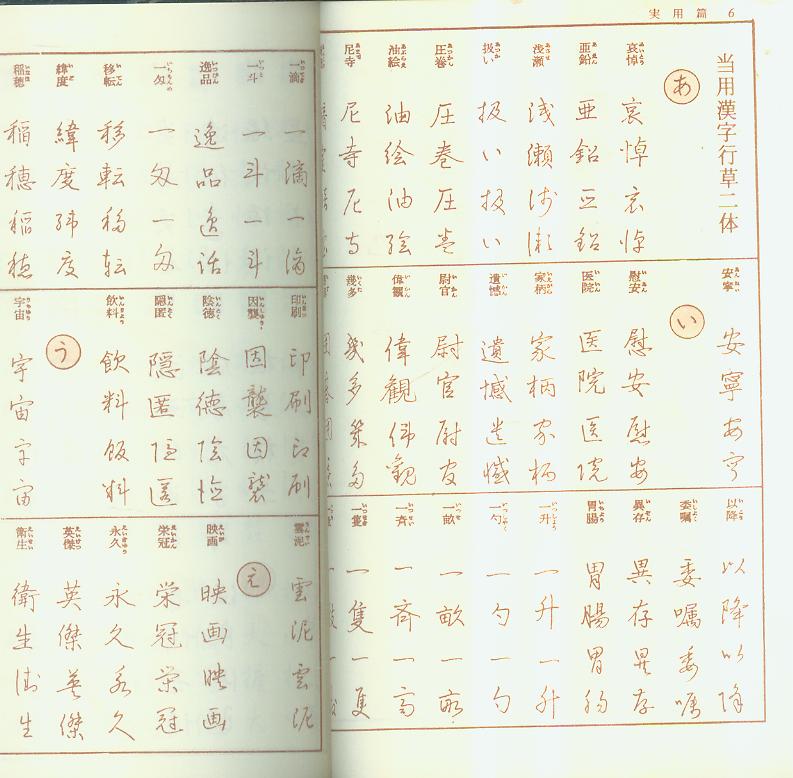 実用篇 6
当用漢字行草二体
あ
哀悼 哀悼哀悼
亜鉛 亜鉛亜鉛
浅瀬 浅瀬浅瀬
扱い 扱い扱い
圧巻 圧巻圧巻
油絵 油絵油絵
尼寺 尼寺尼寺
安寧 安寧安寧
い
慰安 慰安慰安
医院 医院医院
家柄 家柄家柄
遺憾 遺憾遺憾
尉官 尉官尉官
偉観 偉観偉観
幾多 幾多幾多
以降 以降以降
委嘱 委嘱委嘱
異存 異存異存
胃腸 胃腸胃腸
一升 一升一升
一勺 一勺一勺
一畝 一畝一畝
一斉 一斉一斉
一隻 一隻一隻
一滴 一滴一滴
一斗 一斗一斗
逸品 逸品逸話
一匁 一匁一匁
移転 移転移転
緯度 緯度緯度
稲穂 稲穂稲穂
印刷 印刷印刷
因襲 因襲因襲
陰徳 陰徳陰徳
隠匿 隠匿隠匿
飲料 飲料飲料
う
宇宙 宇宙宇宙
雲泥 雲泥雲泥
え
映画 映画映画
栄冠 栄冠栄冠
永久 永久永久
英傑 英傑英傑
衛生 衛生衛生